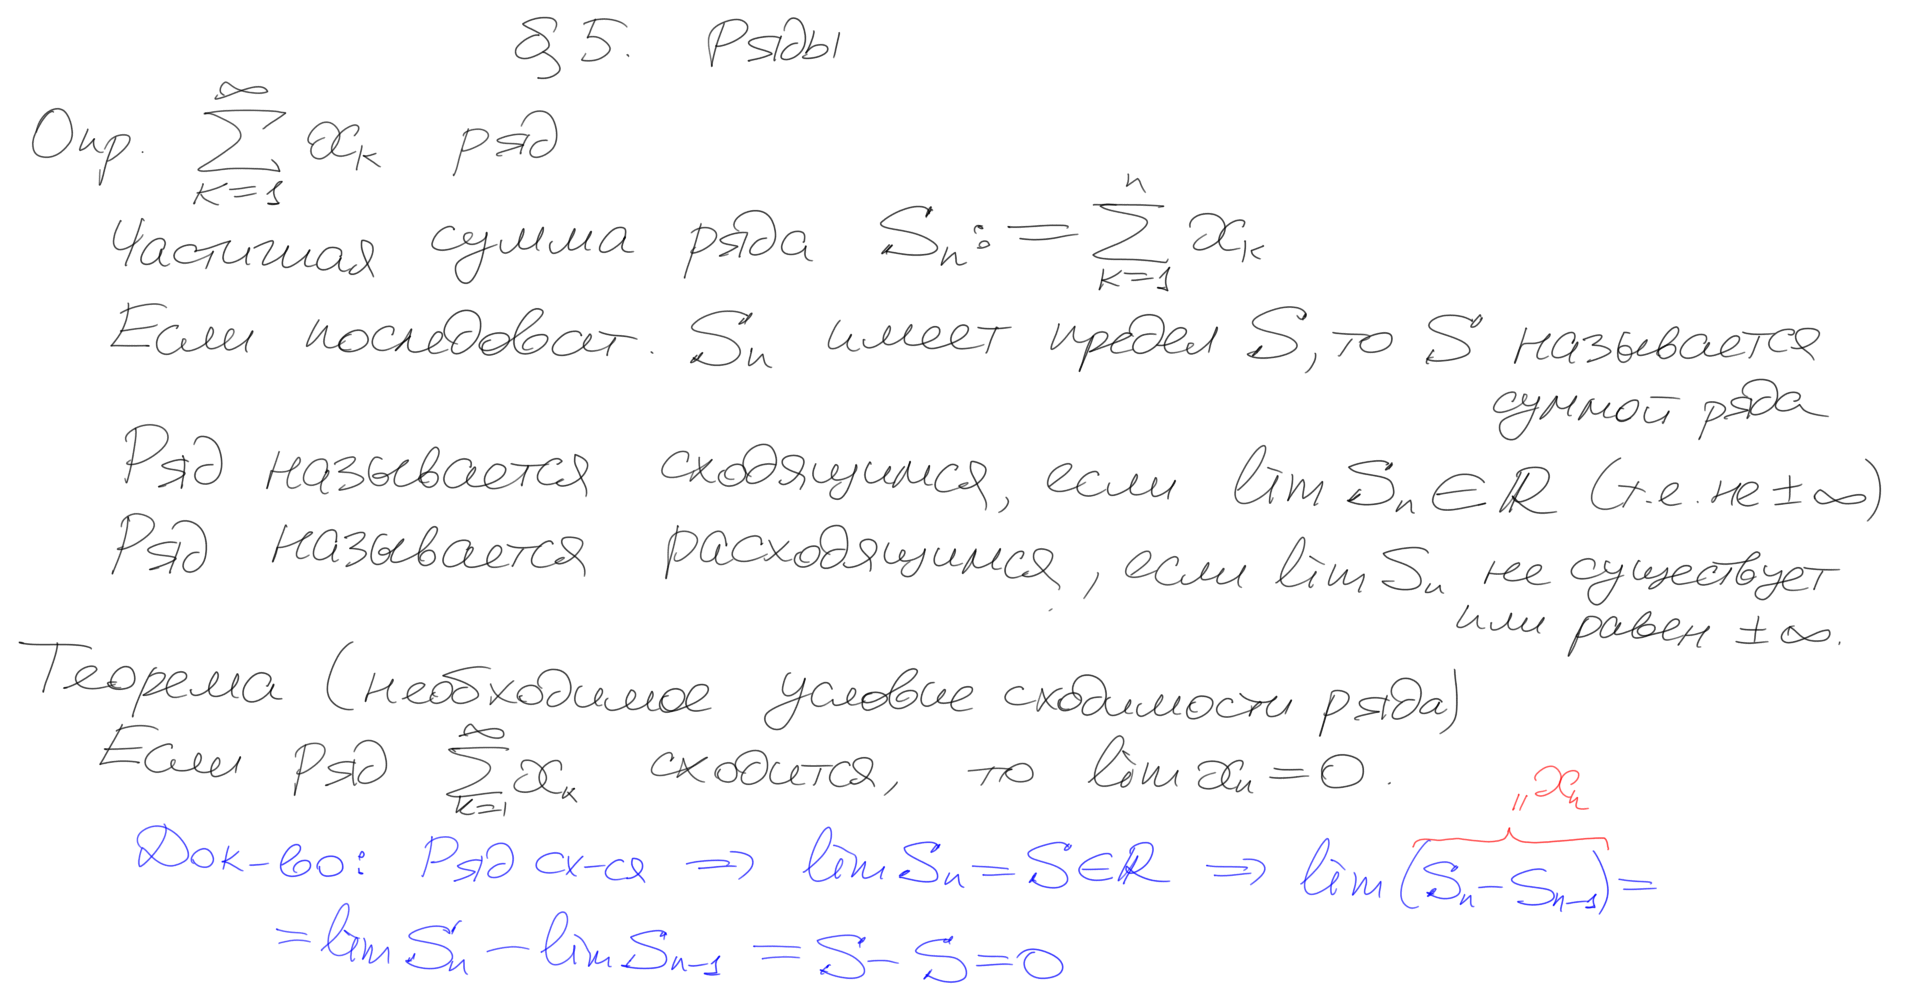 §5. Ряды
Опр. $\sum_{k=1}^{\infty} x_k$ ряд
Частичная сумма ряда $S_n := \sum_{k=1}^{n} x_k$
Если последоват. $S_n$ имеет предел $S$, то $S$ называется
суммой ряда
Ряд называется сходящимся, если $\lim S_n \in \mathbb{R}$ (т.е. не $\pm\infty$)
Ряд называется расходящимся, если $\lim S_n$ не существует
или равен $\pm\infty$.
Теорема (необходимое условие сходимости ряда)
Если ряд $\sum_{k=1}^{\infty} x_k$ сходится, то $\lim x_n = 0$.
Док-во: Ряд сх-ся $\Rightarrow \lim S_n = S \in \mathbb{R} \Rightarrow \lim \overbrace{(S_n - S_{n-1})}^{= x_n} =$
$= \lim S_n - \lim S_{n-1} = S - S = 0$